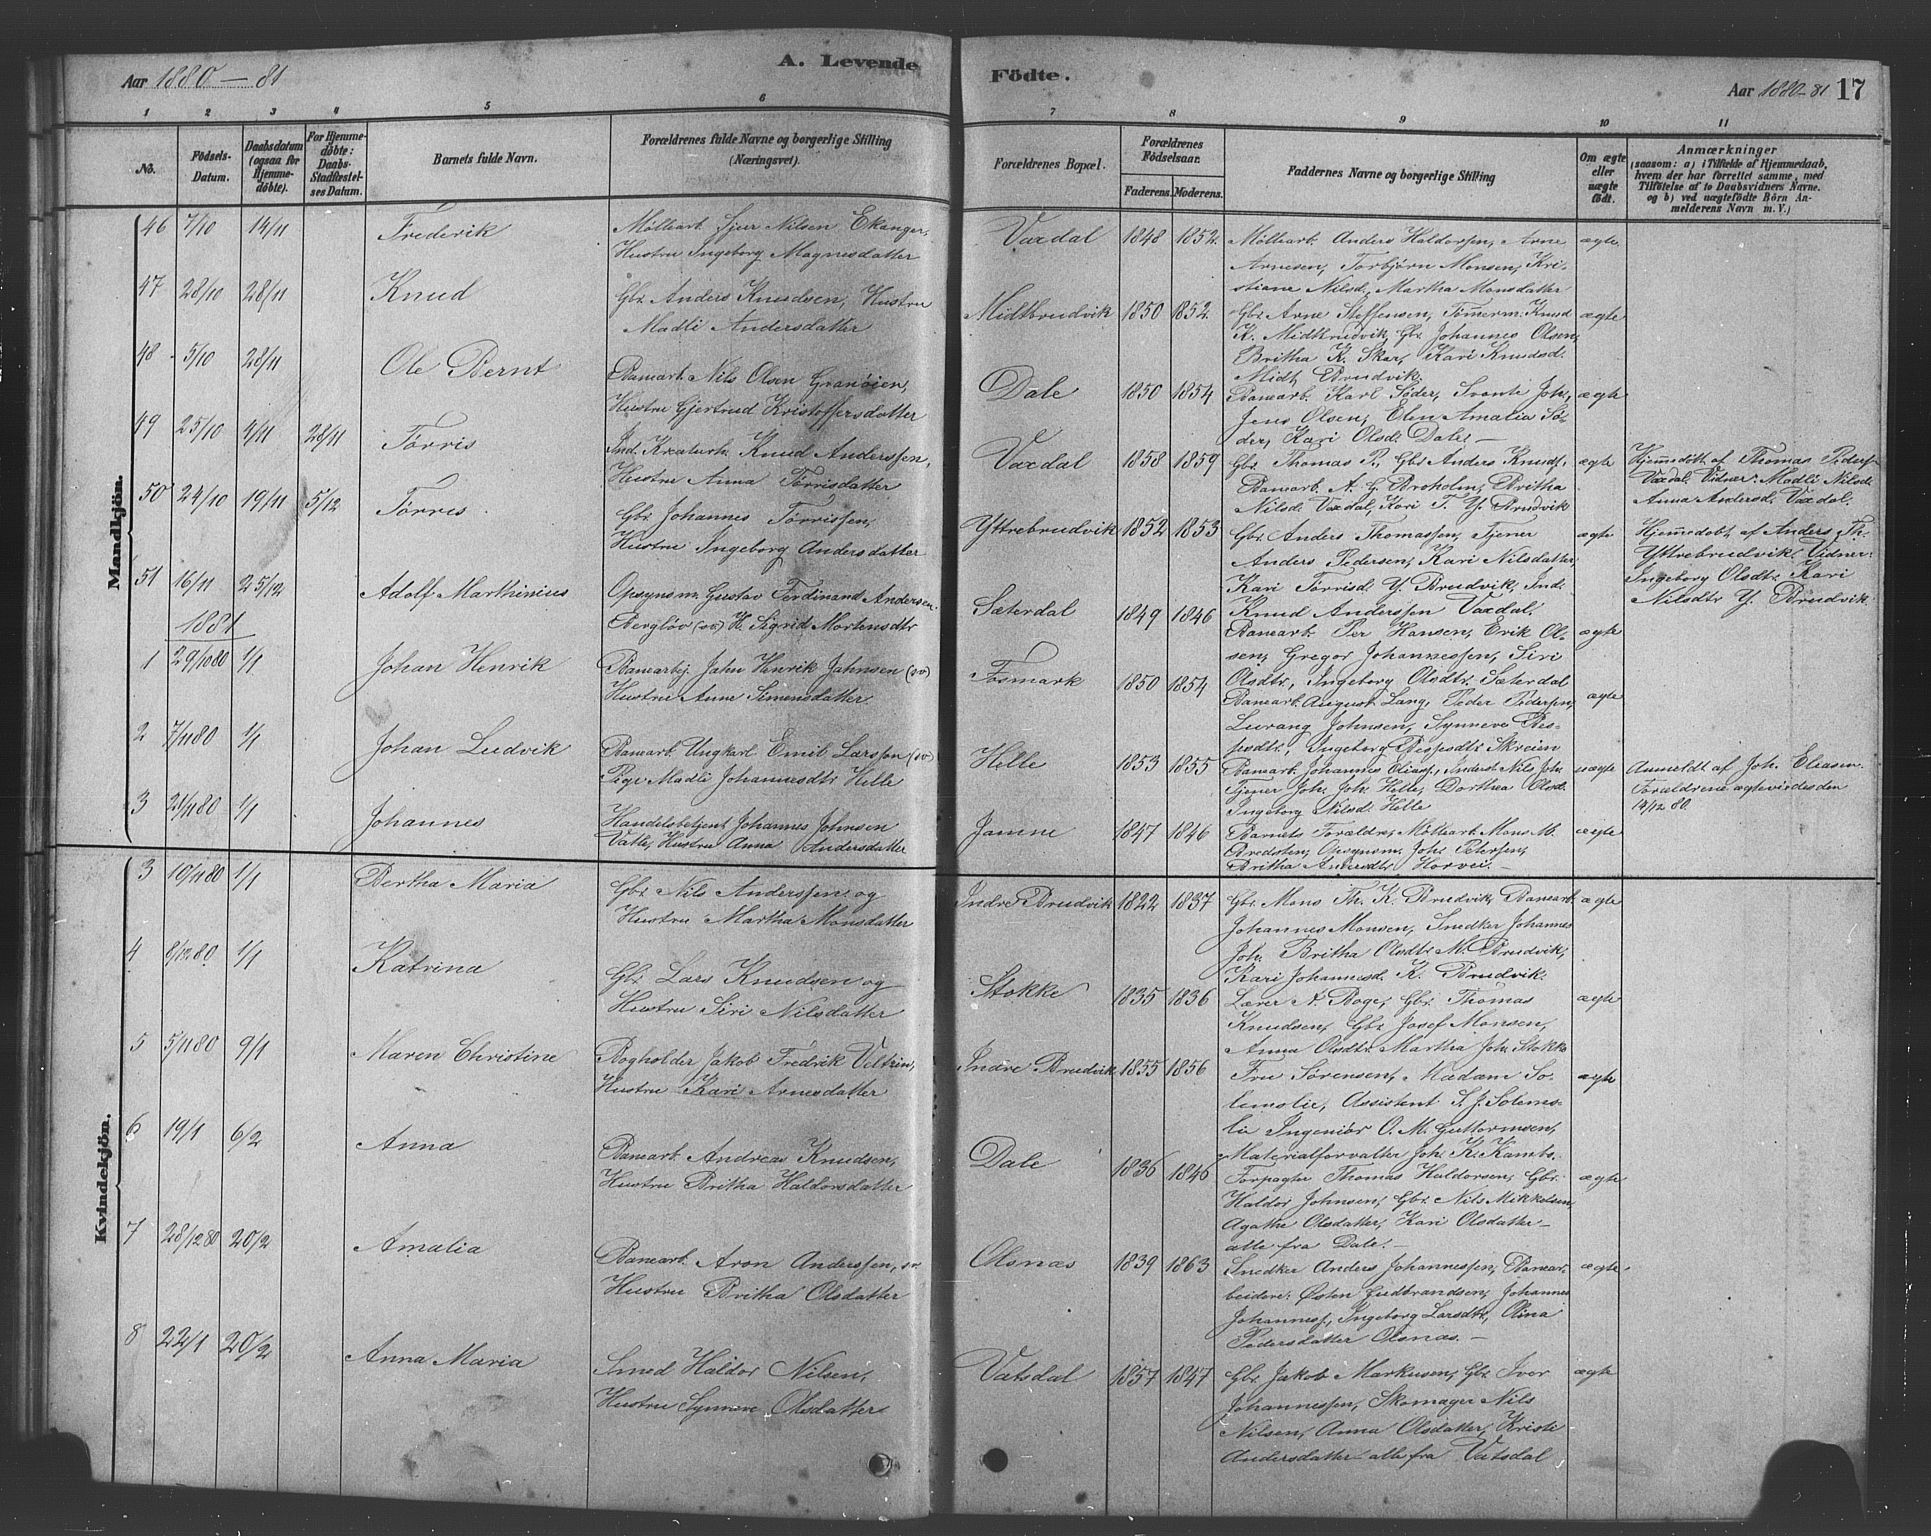 Aar 1880 — 81
A. Levende
Födte.
Aar 1880-81 17
1 2 3 4 5 6 7 8 9 10 11
No.
Födsels-
Datum.
Daabsdatum
(ogsaa for
Hjemme-
döbte).
For Hjemme-
döbte:
Daabs-
Stadfæstel-
ses Datum.
Barnets fulde Navn.
Forældrenes fulde Navne og borgerlige Stilling
(Næringsvei).
Forældrenes Bopæl.
Forældrenes
Födselsaar.
Faderens. Moderens.
Faddernes Navne og borgerlige Stilling
Om ægte
eller
uægte
födt.
Anmærkninger
(saasom: a) i Tilfælde af Hjemmedaab,
hvem der har forrettet samme, med
Tilföielse af to Daabsvidners Navne.
og b) ved uægtefödte Börn An-
melderens Navn m. V.)
Mandkjön.
46 7/10 14/11 Frederik
Mölleart. Sjur Nilsen Ekanger,
Hustru Ingeborg Magnesdatter
Vaxdal 1848 1852.
Mölleart. Anders Haldorsen, Arne
Arnesen, Torbjörn Monsen, Kri-
stiane Nilsd, Martha Monsdatter
ægte.
47 28/10 28/11 Knud
Gbr. Anders Knudsen, Hustru
Madli Andersdatter
Midtbrudvik 1850 1852.
Gbr. Arne Steffensen, Tömerm. Knud
K. Midtbrudvik, Gbr Johannes Olsen,
Britha K. Skar, Kari Knudsd.
Midt Brudvik.
ægte
48 5/10 28/11 Ole Bernt
Banearb. Nils Olsen Granöien,
Hustru Gjertrud Kristoffersdatter
Dale 1850 1854
Banearb. Karl Söder, Svente Joh.,
Jens Olsen, Elen Amalia Sö-
der, Kari Olsd. Dale. —
ægte
49 25/10 4/11 28/11 Törris
Ind. Kreaturh. Knud Anderssen,
Hustru Anna Törrisdatter
Vaxdal 1858 1859
Gbr. Thomas P., Gbr Anders Knuds.,
Banearb. A. G. Broholm, Britha
Nilsd. Vaxdal, Kari T. Y. Brudvik
ægte
Hjemmedöbt af Thomas Peders.
Vaxdal. Vidner: Madli Nilsd.
Anna Andersd. Vaxdal.
50 24/10 19/11 5/12 Törris.
Gbr. Johannes Törrissen,
Hustru Ingeborg Andersdatter
Yttrebrudvik 1852 1853
Gbr. Anders Thomassen, Tjener
Anders Pedersen, Kari Nilsdatter,
Kari Törrisd. Y. Brudvik, Ind.
Knud Anderssen Vaxdal.
ægte
Hjemmedöbt af Anders Th.
Yttrebrudvik. Vidner:
Ingeborg Olsdtr. Kari
Nilsdtr Y. Brudvik.
51 16/11 25/12 Adolf Marthinius
Opsynsm. Gustav Ferdinand Andersen
Berglöv (sv) H. Sigrid Mortensdtr
Sæterdal 1849 1846
Banearb. Per Hansen, Erik Ol-
sen, Gregor Johannessen, Siri
Olsdtr., Ingeborg Olsdtr. Sæterdal
ægte
1881
1 29/10 80 1/1 Johan Henrik
Banearbej. Jahn Henrik Jahnsen (sv)
Hustru Anne Simensdatter.
Fosmark 1850 1854
Banearb. August Lang, Peder Pedersen,
Lurang Johnsen, Synneve Bes-
pedtr., Ingeborg Bespedtr. Skreien
ægte
2 7/11 80 1/1 Johan Ludvik
Banearb. Ungkarl Emil Larssen (sv)
Pige Madli Johannesdtr Helle
Helle 1853 1855
Banearb. Johannes Eliass., Inderst Nils Joh.
Tjener Joh. Joh. Helle, Dorthea Olsd.
Ingeborg Nilsd. Helle
uægte
Anmeldt af Joh. Eleasen
Forældrene ægteviedes den
14/12 80.
3 21/11 80 1/1 Johannes
Handelsbetjent Johannes Johnsen
Vatle, Hustru Anna Andersdatter
Jamne 1847 1846
Barnets Forældre, Mölleart. Mons M.
Bredsten, Opsynsm. Joh. Petersen,
Britha Andersdtr Horvei. —
ægte
Kvindekjön.
3 10/11 80 1/1 Bertha Maria
Gbr. Nils Anderssen og
Hustru Martha Monsdatter
Indre Brudvik 1822 1837
Gbr. Mons Th. K. Brudvik, Banearb.
Johannes Monsen, Snedker Johannes
Joh. Britha Olsdtr. M. Brudvik,
Kari Johannesd. K. Brudvik.
ægte
4 8/12 80 1/1 Katrina
Gbr. Lars Knudsen og
Hustru Siri Nilsdatter
Stokke 1835 1836
Lærer A. Boge, Gbr. Thomas
Knudsen, Gbr. Josef Monsen,
Anna Olsdtr. Martha Joh. Stokke
ægte
5 5/11 80 9/1 Maren Christine
Bogholder Jakob Fredrik Veltzin,
Hustru Kari Arnesdatter
Indre Brudvik 1855 1856
Fru Sörensen, Madam So-
lemslie, Assistent S. J. Solems-
lie Ingeniör O. M. Guttormsen,
Materialforvalter Joh. K. Kambs.
ægte
6 19/1 6/2 Anna
Banearb. Andreas Knudsen,
Hustru Britha Haldorsdatter
Dale 1836 1846
Forpagter Thomas Haldorsen, Gbr.
Haldor Johnsen, Gbr. Nils Mikkelsen,
Agathe Olsdatter, Kari Olsdatter —
alle fra Dale. —
ægte
7 28/12 80 20/2 Amalia
Banearb. Aron Anderssen, sv.
Hustru Britha Olsdatter
Olsnæs 1839 1863
Snedker Anders Johannessen, Banear-
beidere: Östen Gudbrandsen, Johannes
Johanness., Ingeborg Larsdtr, Olina
Pedersdatter Olsnæs. —
ægte.
8 22/1 20/2 Anna Maria
Smed Haldor Nilsen,
Hustru Synneve Olsdatter
Vatsdal 1857 1847
Gbr. Jakob Markusen, Gbr. Iver
Johannessen, Skomager Nils
Nilsen, Anna Olsdatter, Kristi
Andersdatter alle fra Vatsdal
ægte